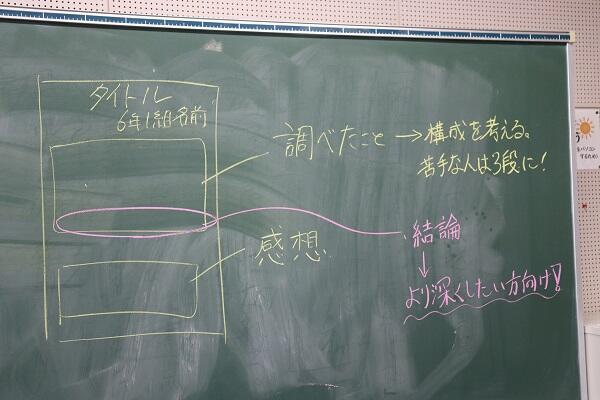 タイトル
6年1組名前
調べたこと→構成を考える。
苦手な人は3段に!
感想
結論
↓
より深くしたい方向け!